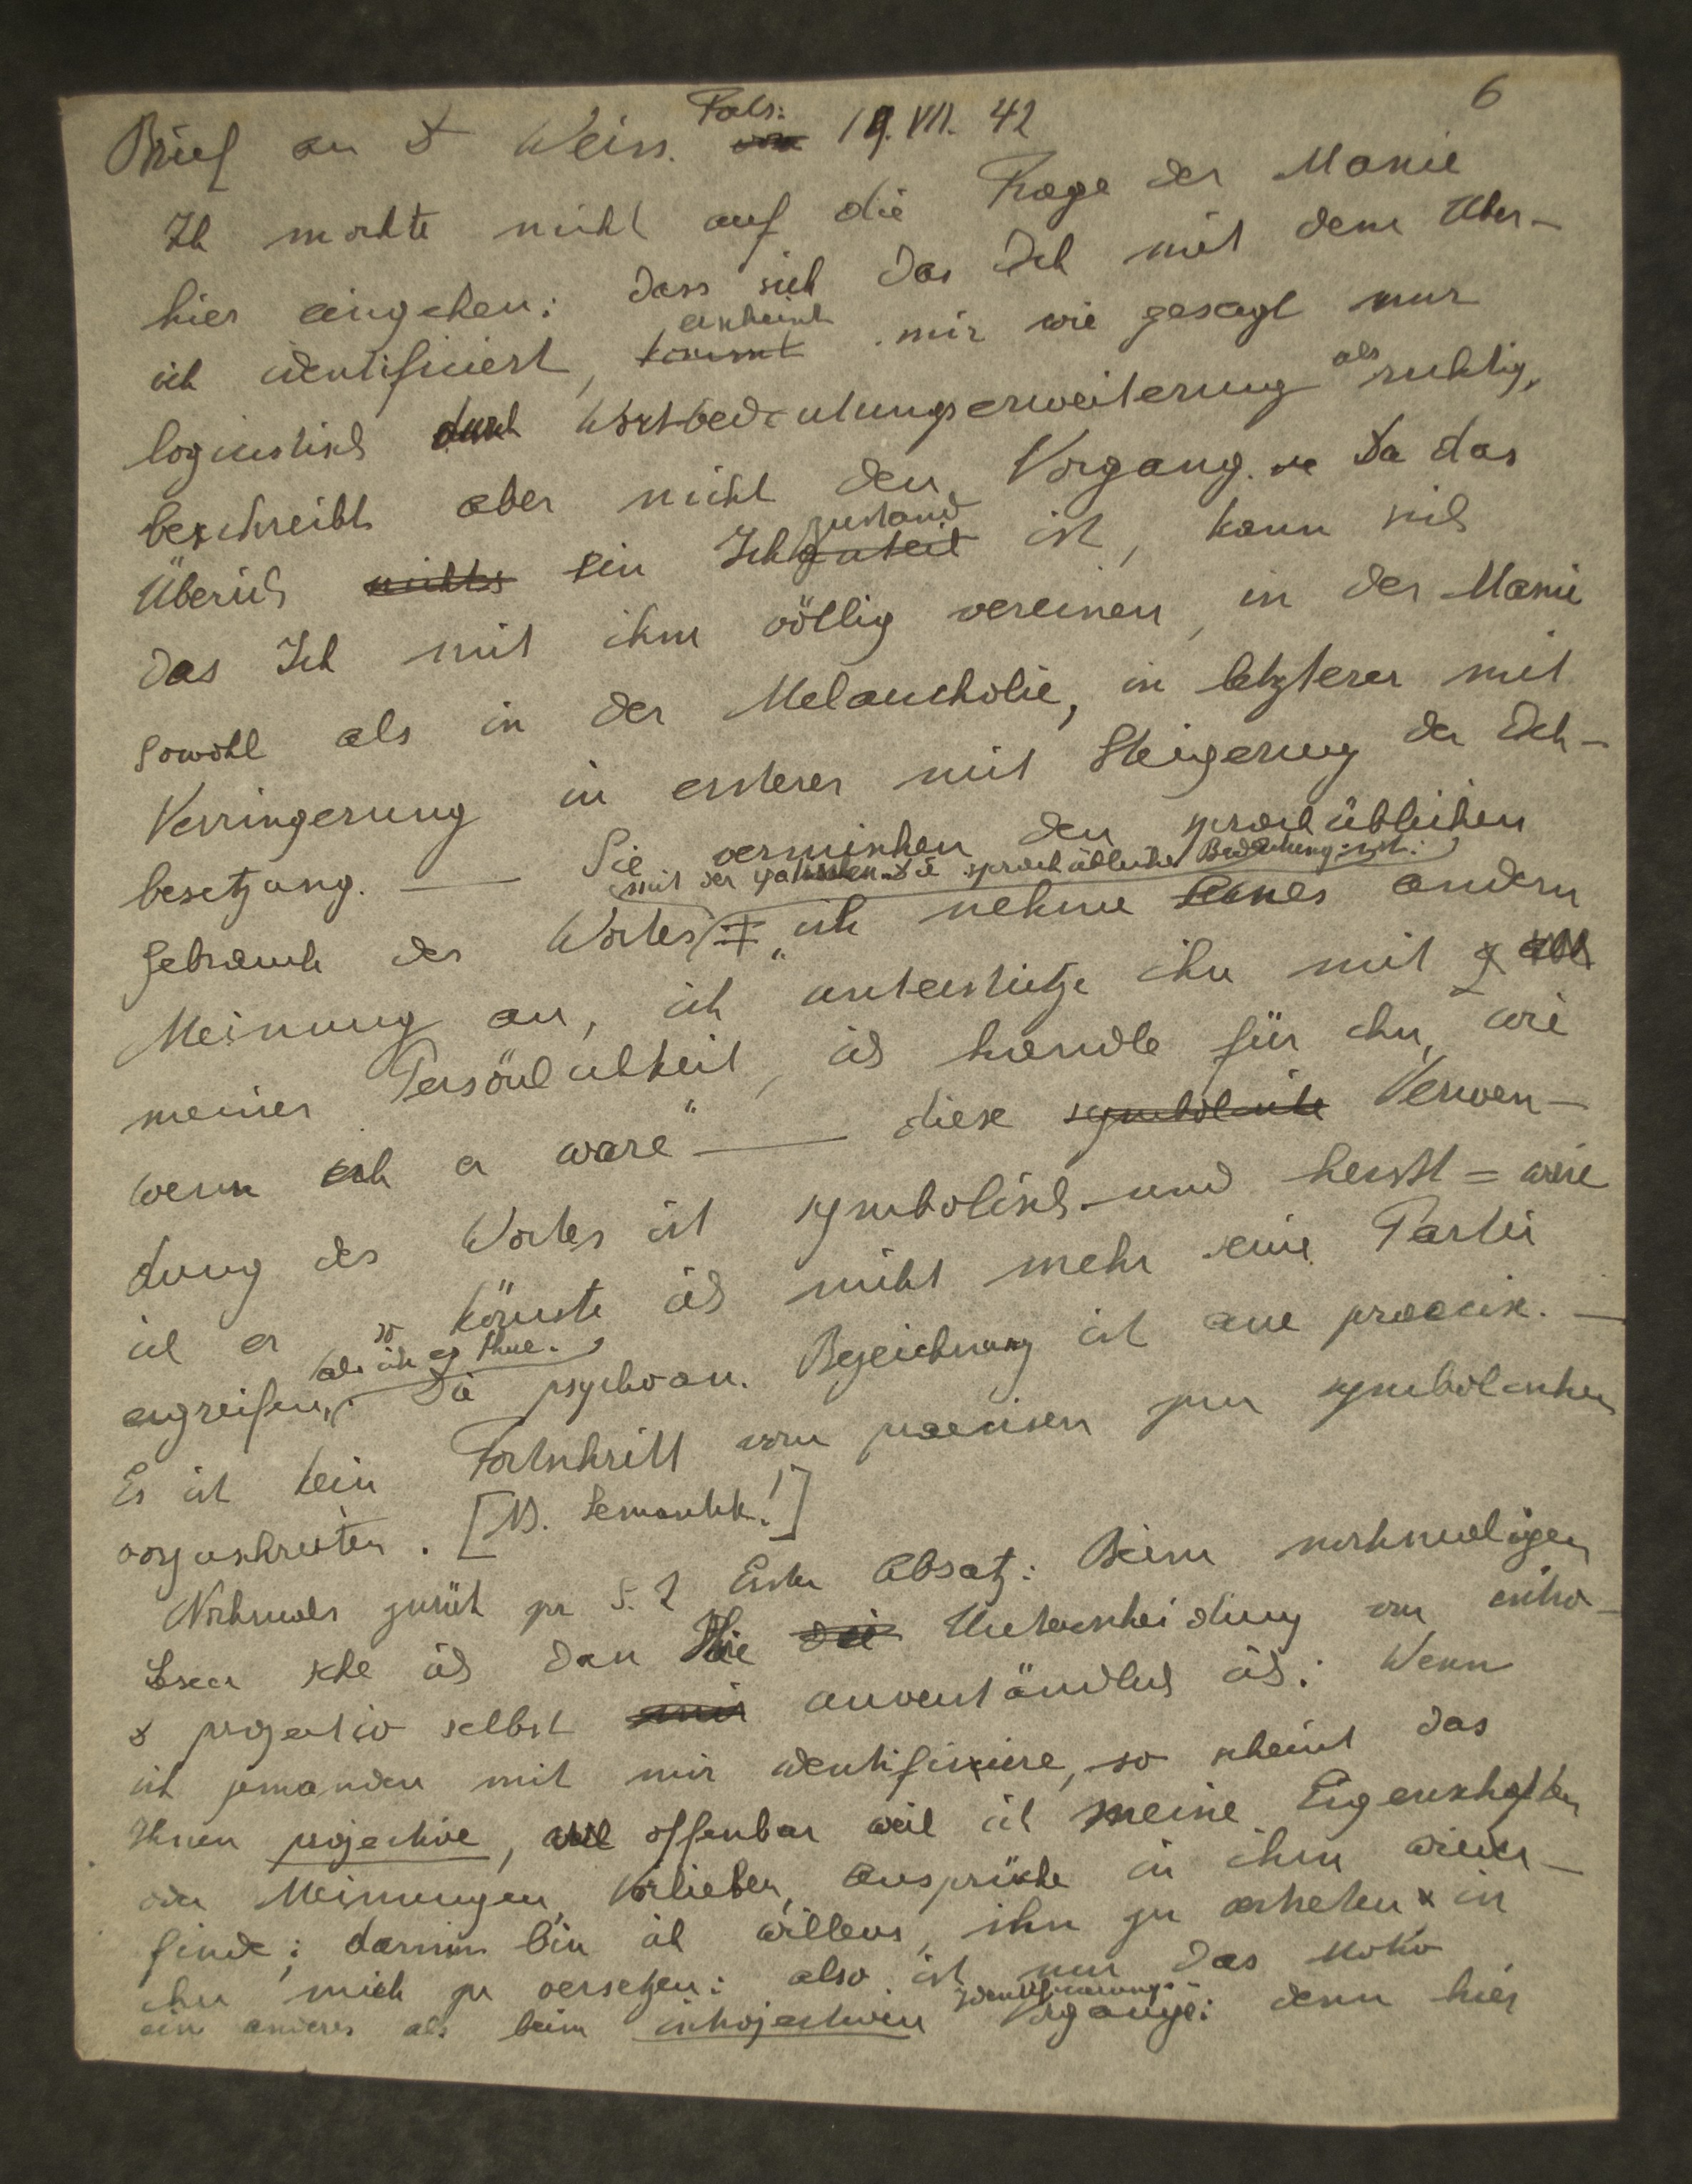 6
Brief an Dr Weiss. Fals: von 19. VII. 42
Ich mochte nicht auf die Frage der Manie
hier eingehen: dass sich das Ich mit dem Uber-
ich identificiert, kommt erscheint mir wie gesagt nur
logicistisch durch Wortbedeutungserweiterung als richtig,
beschreibt aber nicht den Vorgang. Da das
Überich nichts ein Ich zustand ist, kann sich
das Ich mit ihm völlig vereinen, in der Manie
sowohl als in der Melancholie, in letzterer mit
Verringerung in ersterer mit Steigerung der Ich-
besetzung. — Sie vermischen den sprachüblichen
mit der . Die sprachübliche Bedeutung ist:
Gebrauch des Wortes „ich nehme eines andern
Meinung an, ich unterstütze ihn mit
meiner Persönlichkeit, ich handle für ihn, wie
wenn ich er ware" — diese symbolische Verwen-
dung des Wortes ist symbolisch und heisst = wäre
ich er so könnte ich nicht mehr seine Partei
ergreifen, als ich es thue. Die psychoan. Bezeichnung ist eine praecise. —
Es ist kein Fortschritt vom praecisen zum symbolischen
vorzuschreiten. [N. Semantik!]
Nochmals zurück zu S. 2 Erster Absatz: Beim nochmaligen
Lesen sehe ich dass Ihre die Unterscheidung von intro-
& projectiv selbst mir unverständlich ist: Wenn
ich jemanden mit mir identifiziere, so scheint das
Ihnen projective, weil offenbar weil ich meine Eigenschaften
oder Meinungen, Vorlieben, Ansprüche in ihm wieder-
finde; darum bin ich willens, ihn zu & in
ihn mich zu versetzen: also ist nur das Motiv
ein anderes als beim introjectiven Identificierungs- Vorgange: denn hier